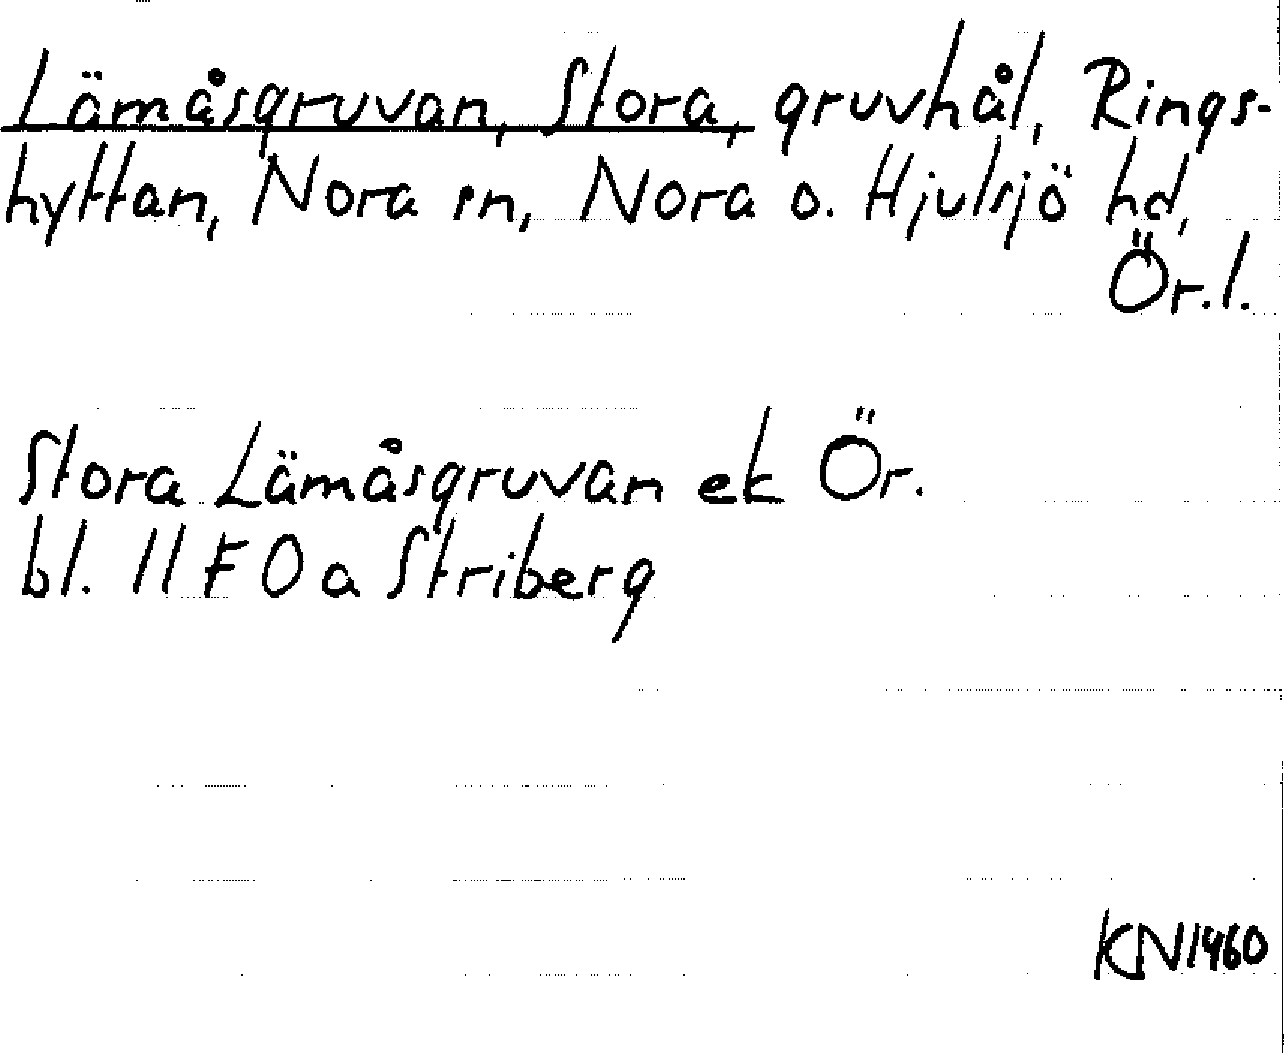 Lämåsgruvan, Stora, gruvhål, Rings-
hyttan, Nora sn, Nora o. Hjulsjö hd,
Ör.l.
Stora Lämåsgruvan ek Ör.
bl. 11F0a Striberg
KN1460